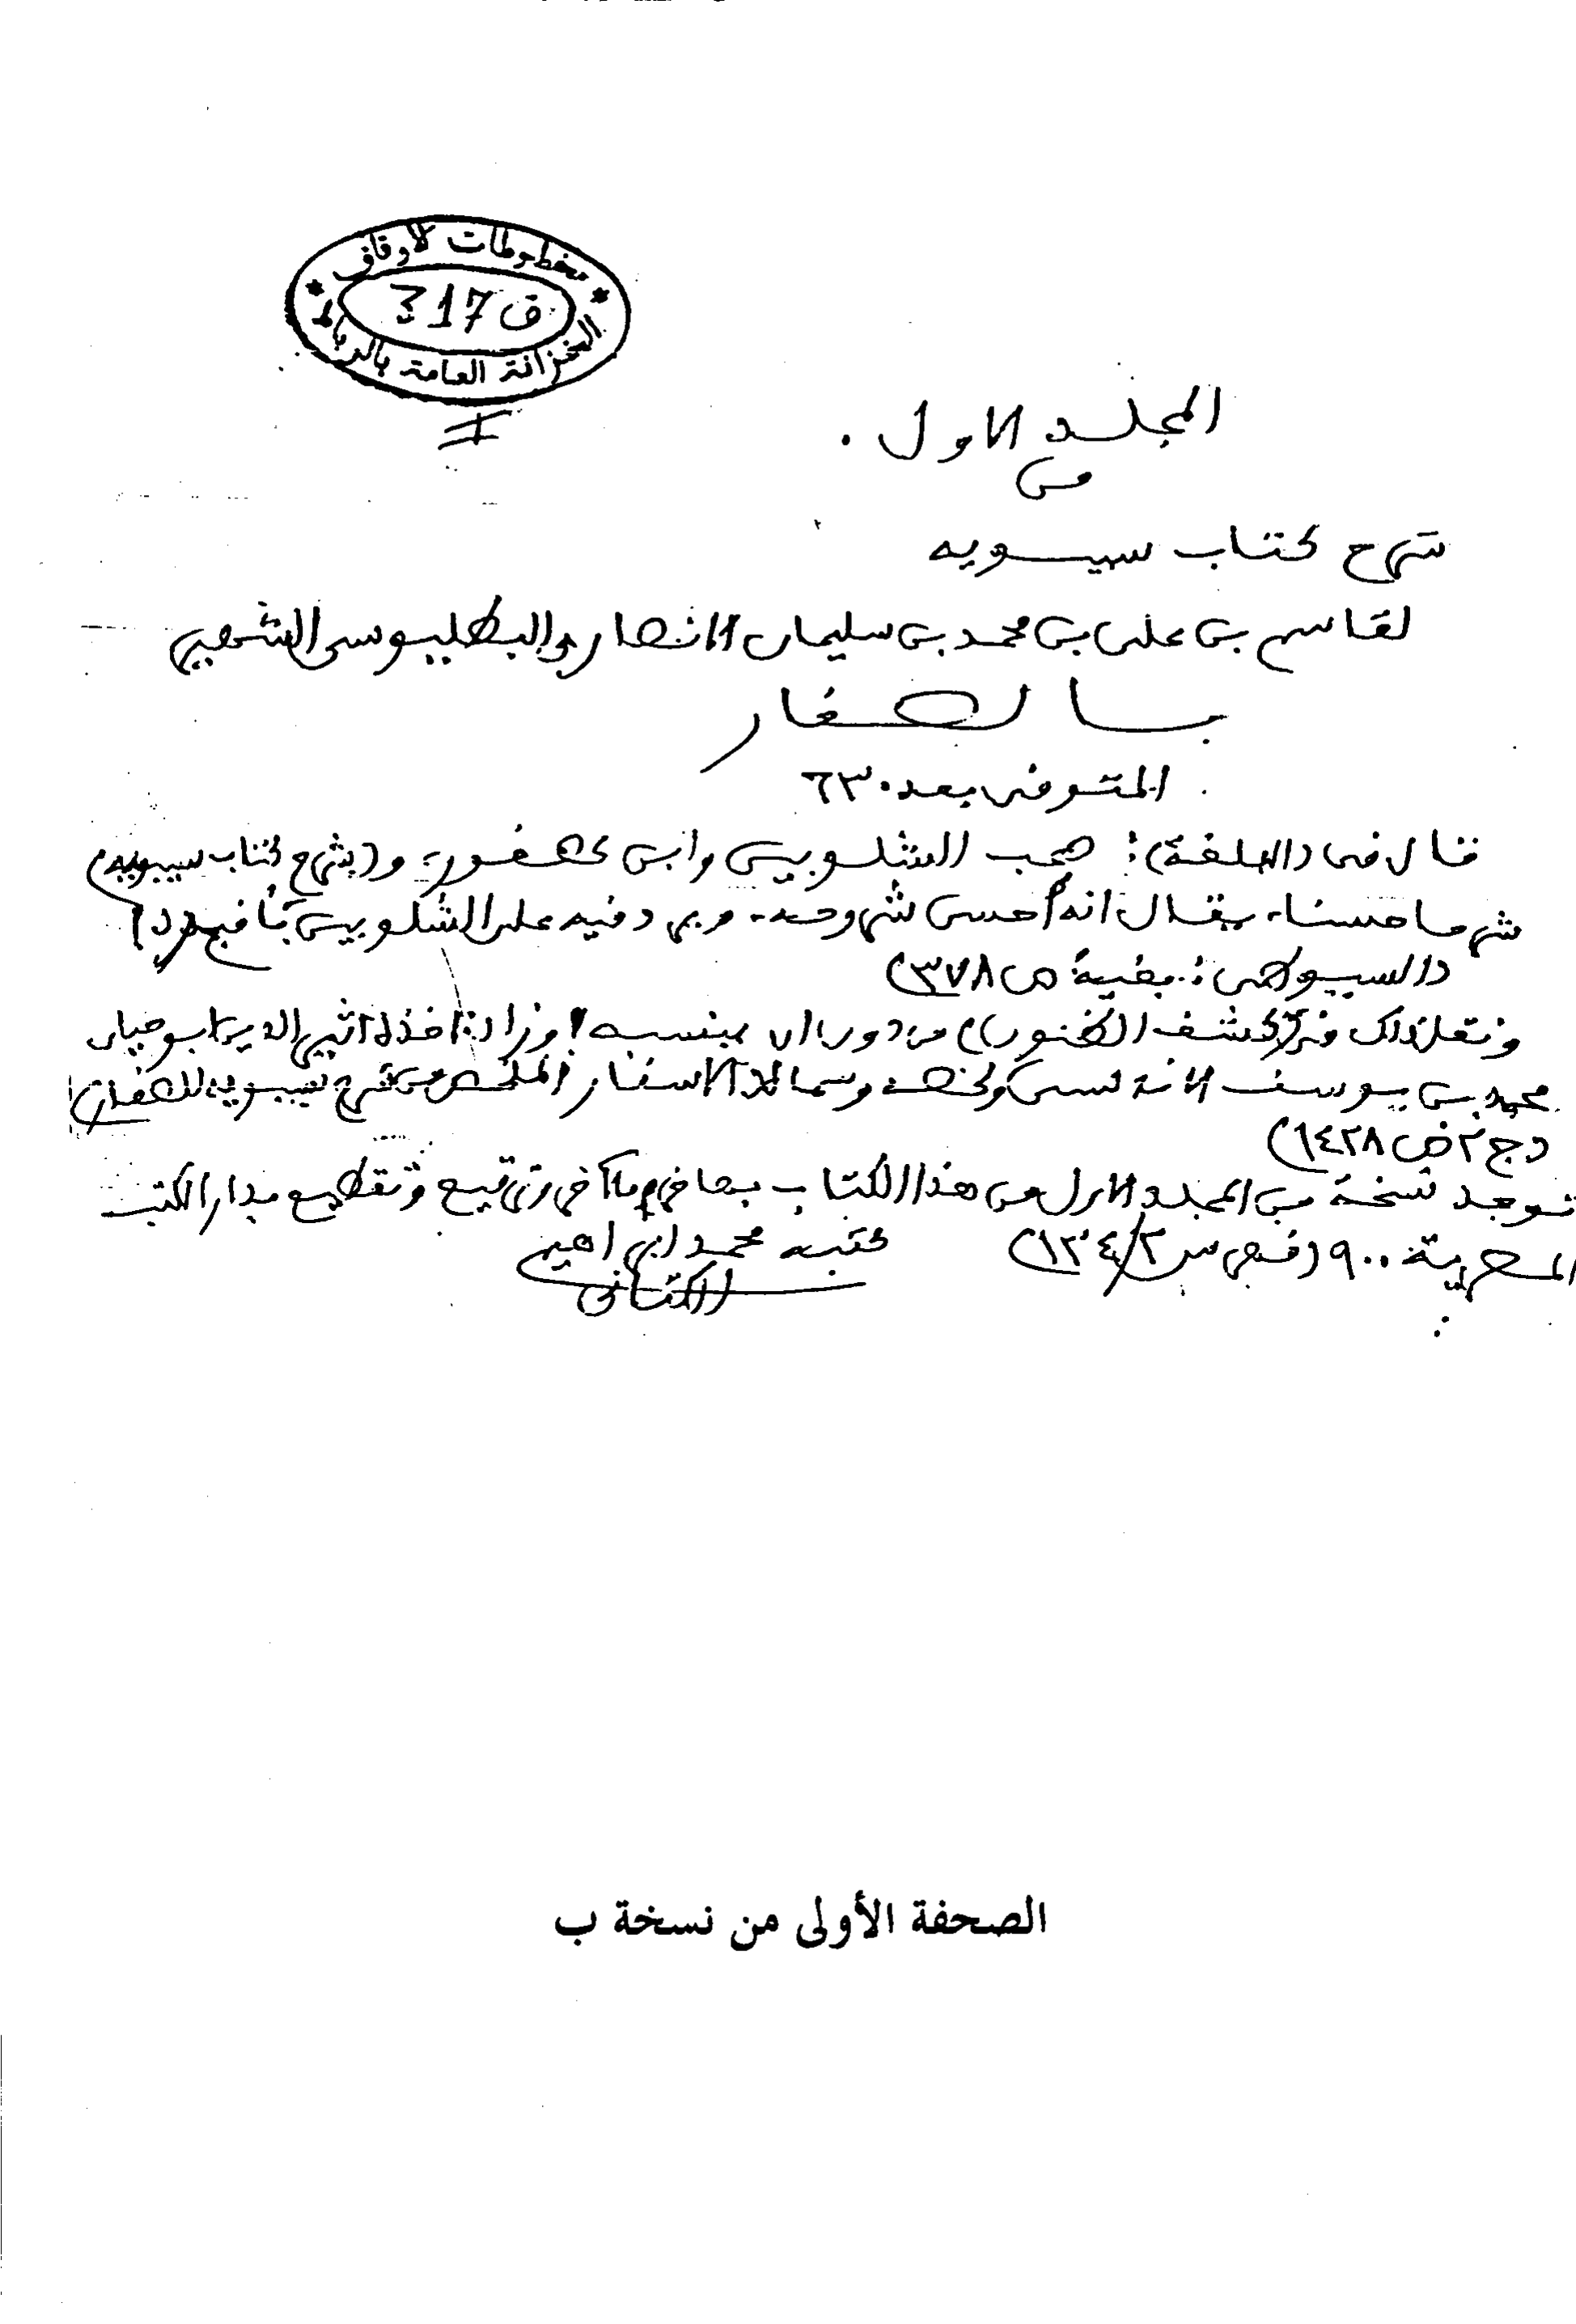 مخطوطات الاوقاف
317 ق
الخزانة العامة بالرباط
المجلد الاول .
من
شرح كتاب سيبويه
لقاسم بن على بن محمد بن سليمان الانصارى البطليوسى الشهير
بالصفار
المتوفى بعد ٦٣٠
قال فى (البلغة): صحب الشلوبين وابن عصفور، و(شرح كتاب سيبويه)
شرحا حسنا، يقال انه أحسن شروحه. ويرد فيه على الشلوبين بأقبح رد)
(السيوطى: بغية ص ٣٧٨)
ونقل ذلك فى (كشف الظنون) من دون ان ينسبه وزاد: اخذه اثير الدين ابو حيان
محمد بن يوسف الاندلسى ولخصه وسماه الاسفار الملخص من شرح سيبويه للصفار)
(ج ٢ ص ١٤٢٨)
توجد نسخة من المجلد الاول من هذا الكتاب بها خرم باآخر وترقيع وتقطيع بدار الكتب
المصرية ٩٠٠ (فهرس ١٣٤/٢) كتبه محمد ابراهيم
الكتانى
الصحفة الأولى من نسخة ب